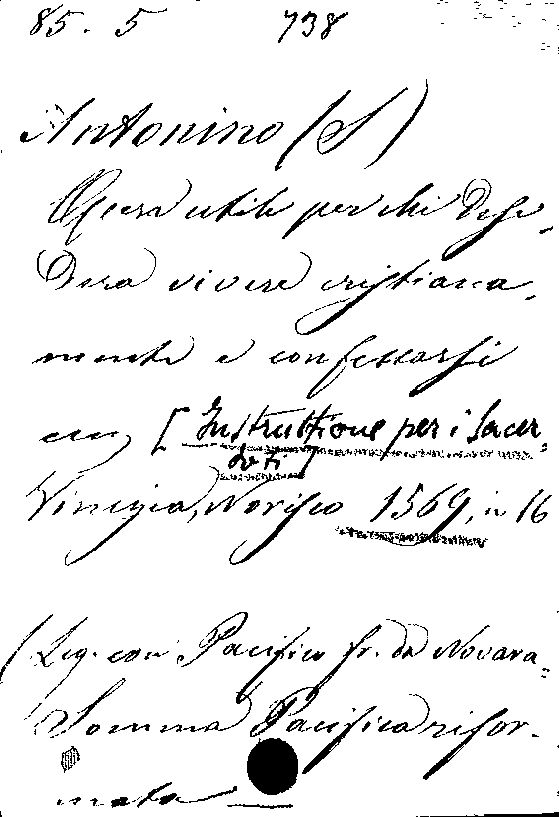 85. 5 738
Antonino (S)
Opera utile per chi desi-
dera vivere cristiana-
mente e confessarsi
ecc, [Instruttione per i Sacer-
doti]
Vinegia, Norisco 1569, in 16
(Leg. con Pacifico fr. da Novara-
Somma Pacifica rifor-
mata